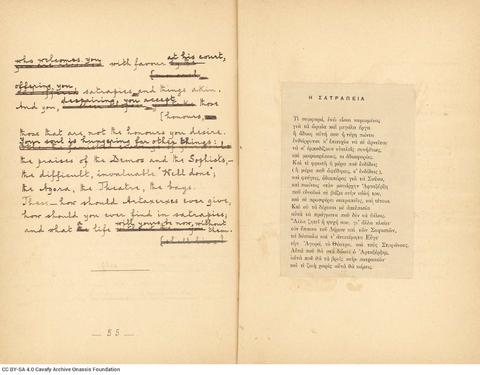 who welcomes you with favour at his court,
offering you satrapies and things akin.
And you, despairing, you accept those
[honours,
those that are not the honours you desire.
Your soul is hungering for other things:
the praises of the Demos and the Sophists,—
the difficult, invaluable 'Well done';
the Agora, the Theatre, the bays.
These—how should Artaxerxes ever give,
how should you ever find in satrapies;
and what life without them.
— 55 —
Η ΣΑΤΡΑΠΕΙΑ
Τί συμφορά, ἐνῶ εἶσαι καμωμένος
γιὰ τὰ ὡραῖα καὶ μεγάλα ἔργα
ἡ ἄδικη αὐτή σου ἡ τύχη πάντα
ἐνθάρρυνσι κ' ἐπιτυχία νὰ σὲ ἀρνεῖται·
νὰ σ' ἐμποδίζουν εὐτελεῖς συνήθειες,
καὶ μικροπρέπειες, κι ἀδιαφορίες.
Καὶ τί φρικτὴ ἡ μέρα ποὺ ἐνδίδεις
(ἡ μέρα ποὺ ἀφέθηκες κ' ἐνδίδεις),
καὶ φεύγεις ὁδοιπόρος γιὰ τὰ Σοῦσα,
καὶ πιαίνεις στὸν μονάρχην Ἀρταξέρξη
ποὺ εὐνοϊκὰ σὲ βάζει στὴν αὐλή του,
καὶ σὲ προσφέρει σατραπεῖες, καὶ τέτοια.
Καὶ σὺ τὰ δέχεσαι μὲ ἀπελπισία
αὐτὰ τὰ πράγματα ποὺ δὲν τὰ θέλεις.
Ἄλλα ζητεῖ ἡ ψυχή σου, γι' ἄλλα κλαίει·
τὸν ἔπαινο τοῦ Δήμου καὶ τῶν Σοφιστῶν,
τὰ δύσκολα καὶ τ' ἀνεκτίμητα Εὖγε·
τὴν Ἀγορά, τὸ Θέατρο, καὶ τοὺς Στεφάνους.
Αὐτὰ ποῦ θὰ στὰ δώσει ὁ Ἀρταξέρξης,
αὐτὰ ποῦ θὰ τὰ βρεῖς στὴ σατραπεία·
καὶ τί ζωὴ χωρὶς αὐτὰ θὰ κάμεις.
CC BY-SA 4.0 Cavafy Archive Onassis Foundation